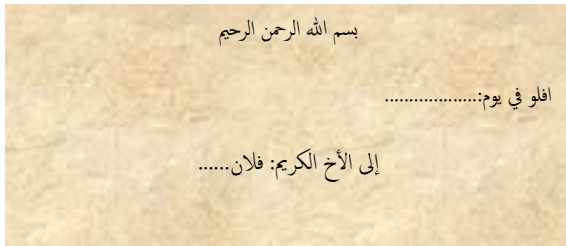 بسم الله الرحمن الرحيم
افلو في يوم:...................
إلى الأخ الكريم: فلان......